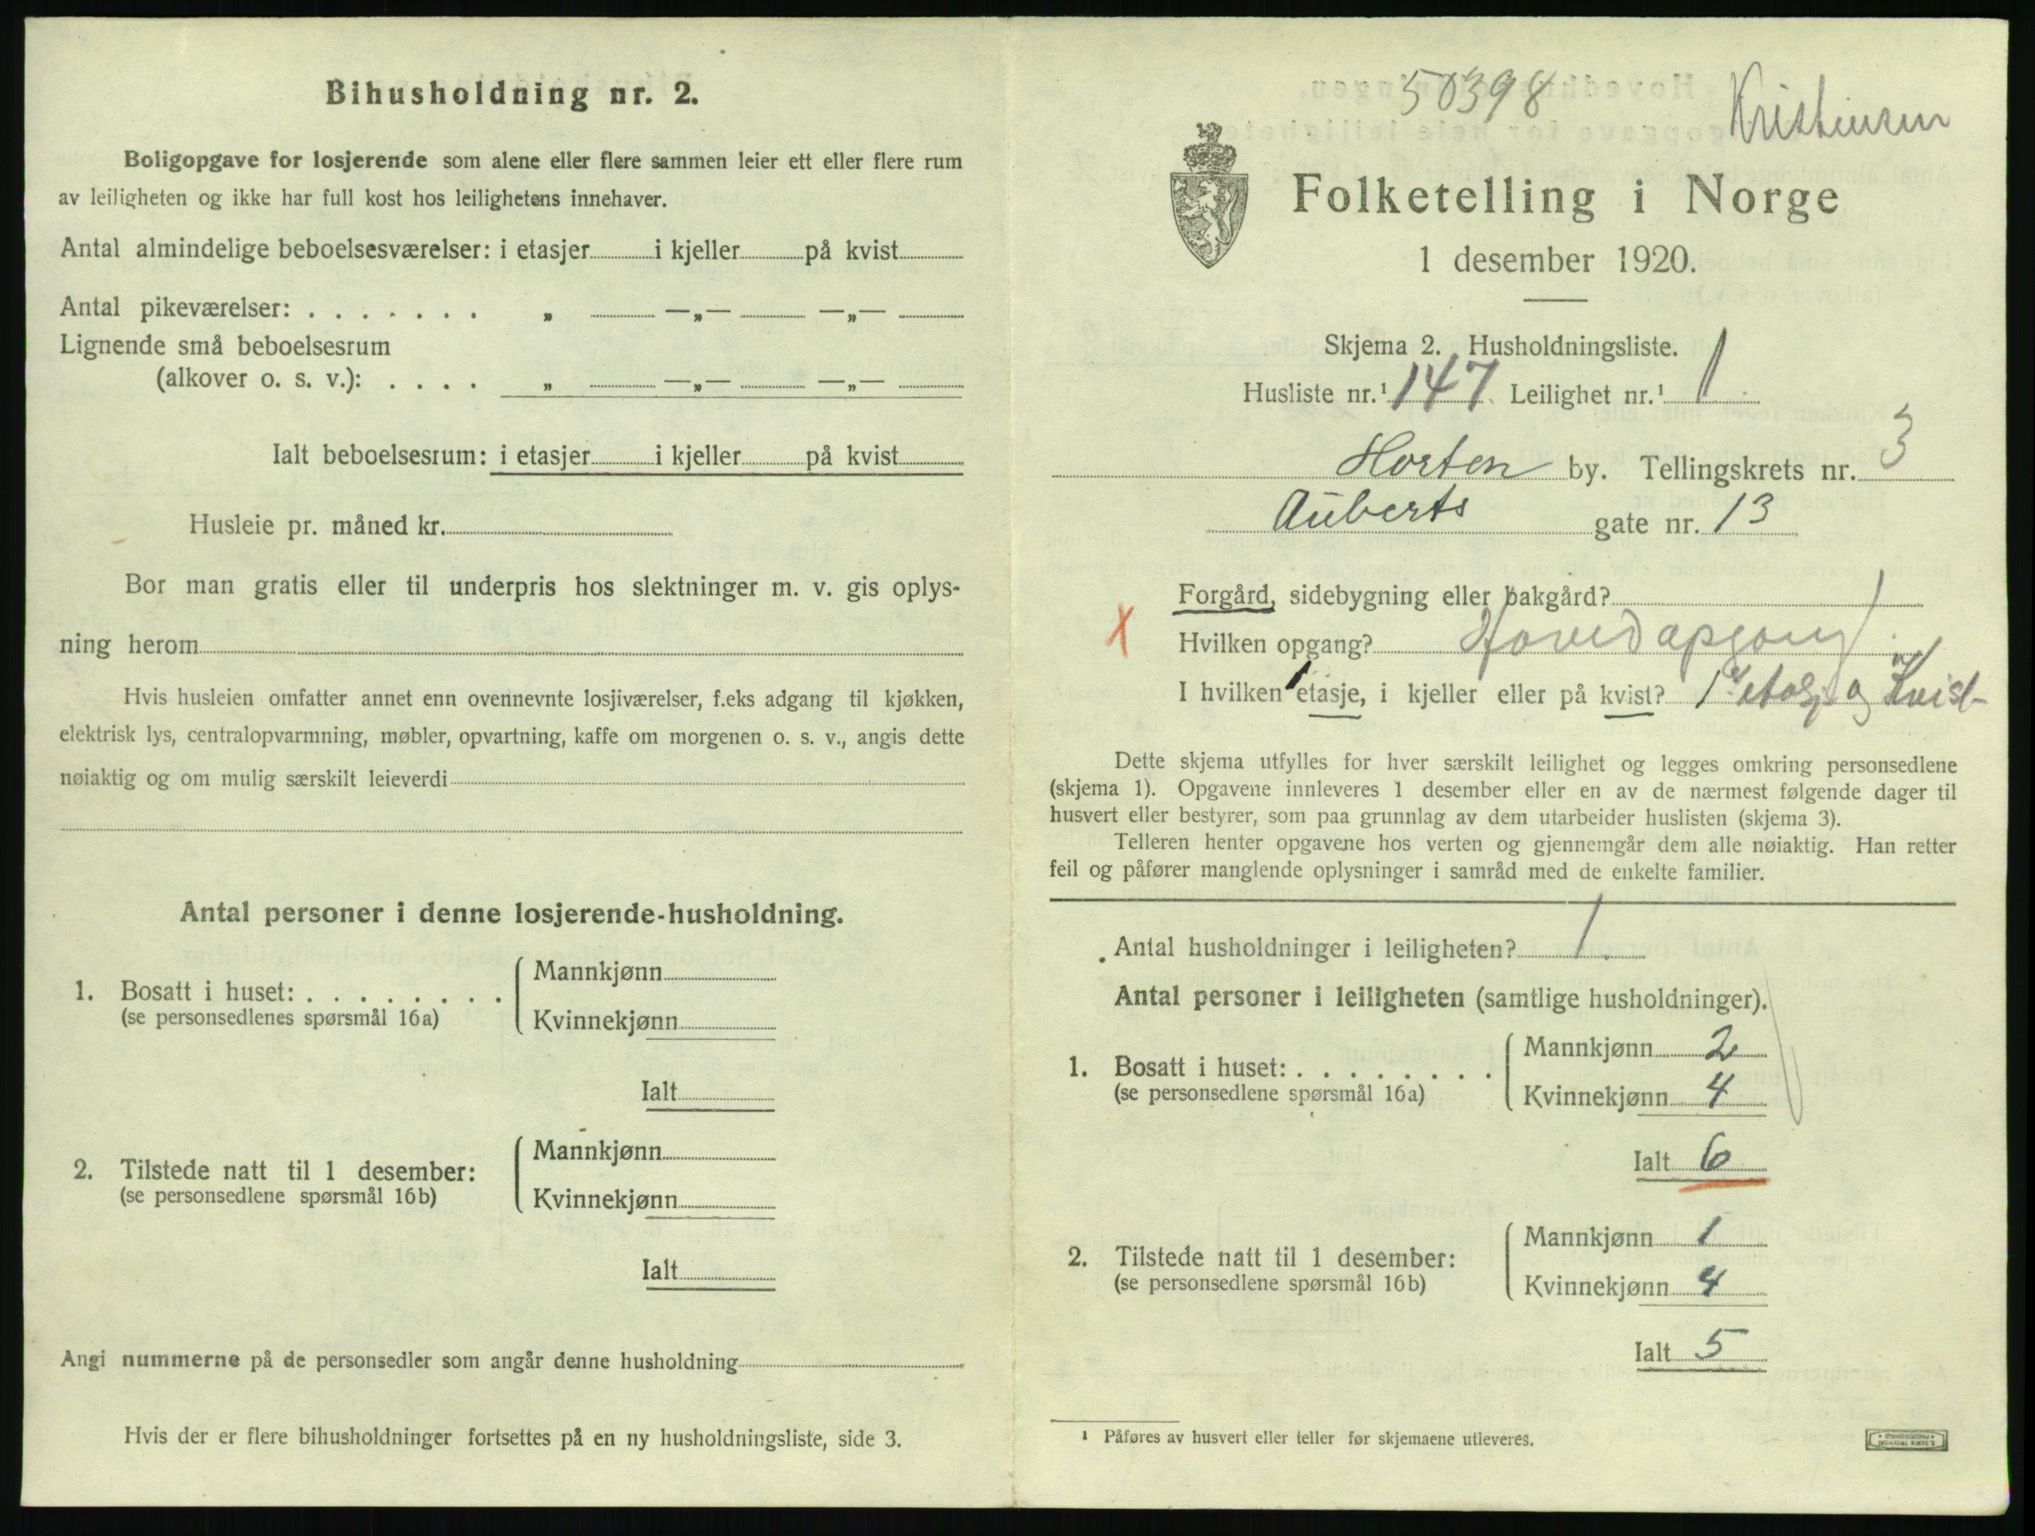 Bihusholdning nr. 2.
Boligopgave for losjerende som alene eller flere sammen leier ett eller flere rum
av leiligheten og ikke har full kost hos leilighetens innehaver.
Antal almindelige beboelsesværelser: i etasjer i kjeller på kvist
Antal pikeværelser: . . . . . . . „ —„— —„—
Lignende små beboelsesrum
(alkover o. s. v.): . . . . „ —„— —„—
Ialt beboelsesrum: i etasjer i kjeller på kvist
Husleie pr. måned kr.
Bor man gratis eller til underpris hos slektninger m. v. gis oplys-
ning herom
Hvis husleien omfatter annet enn ovennevnte losjiværelser, f.eks adgang til kjøkken,
elektrisk lys, centralopvarmning, møbler, opvartning, kaffe om morgenen o. s. v., angis dette
nøiaktig og om mulig særskilt leieverdi
Antal personer i denne losjerende-husholdning.
1. Bosatt i huset: . . . . . . . .
(se personsedlenes spørsmål 16a)
Mannkjønn
Kvinnekjønn
Ialt
2. Tilstede natt til 1 desember:
(se personsedlene spørsmål 16b)
Mannkjønn
Kvinnekjønn
Ialt
Angi nummerne på de personsedler som angår denne husholdning
Hvis der er flere bihusholdninger fortsettes på en ny husholdningsliste, side 3.
50398
Kristiensen
Folketelling i Norge
1 desember 1920.
Skjema 2. Husholdningsliste.
Husliste nr.¹ 147 Leilighet nr.¹ 1
Horten by. Tellingskrets nr. 3
Auberts gate nr. 13
Forgård, sidebygning eller bakgård?
X Hvilken opgang? Hovedapgang
I hvilken 1 etasje, i kjeller eller på kvist? 1 etasj og Kvist
Dette skjema utfylles for hver særskilt leilighet og legges omkring personsedlene
(skjema 1). Opgavene innleveres 1 desember eller en av de nærmest følgende dager til
husvert eller bestyrer, som paa grunnlag av dem utarbeider huslisten (skjema 3).
Telleren henter opgavene hos verten og gjennemgår dem alle nøiaktig. Han retter
feil og påfører manglende oplysninger i samråd med de enkelte familier.
Antal husholdninger i leiligheten? 1.
Antal personer i leiligheten (samtlige husholdninger).
1. Bosatt i huset: . . . . . . . .
(se personsedlene spørsmål 16a)
Mannkjønn 2
Kvinnekjønn 4
Ialt 6
2. Tilstede natt til 1 desember:
(se personsedlene spørsmål 16b)
Mannkjønn 1
Kvinnekjønn 4
Ialt 5
¹ Påføres av husvert eller teller før skjemaene utleveres.